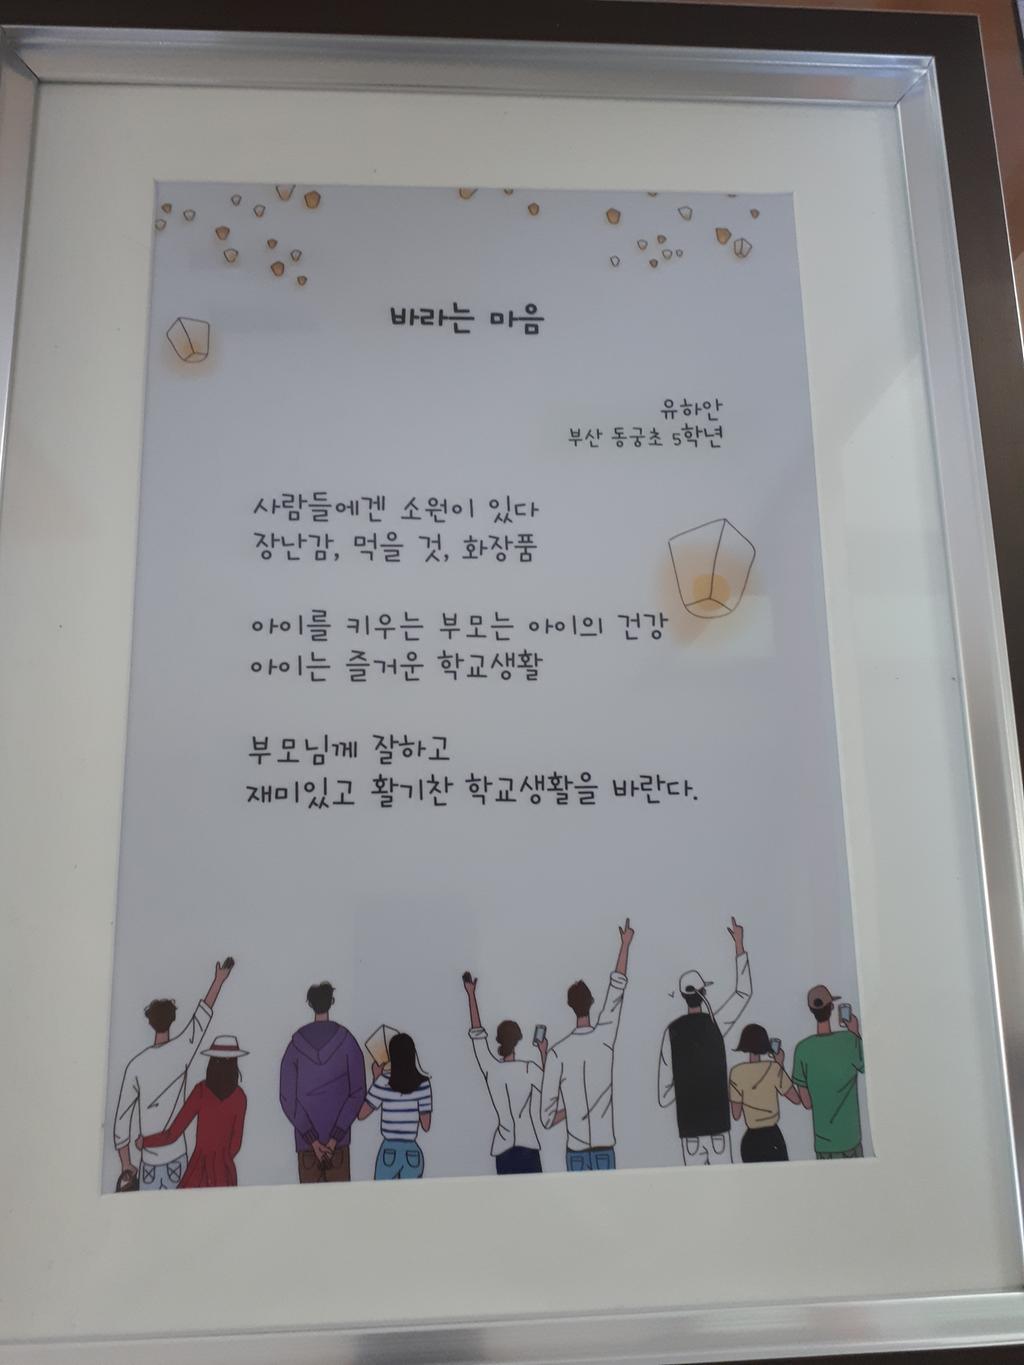 바라는 마음
유하안
부산 동궁초 5학년
사람들에겐 소원이 있다
장난감, 먹을 것, 화장품
아이를 키우는 부모는 아이의 건강
아이는 즐거운 학교생활
부모님께 잘하고
재미있고 활기찬 학교생활을 바란다.